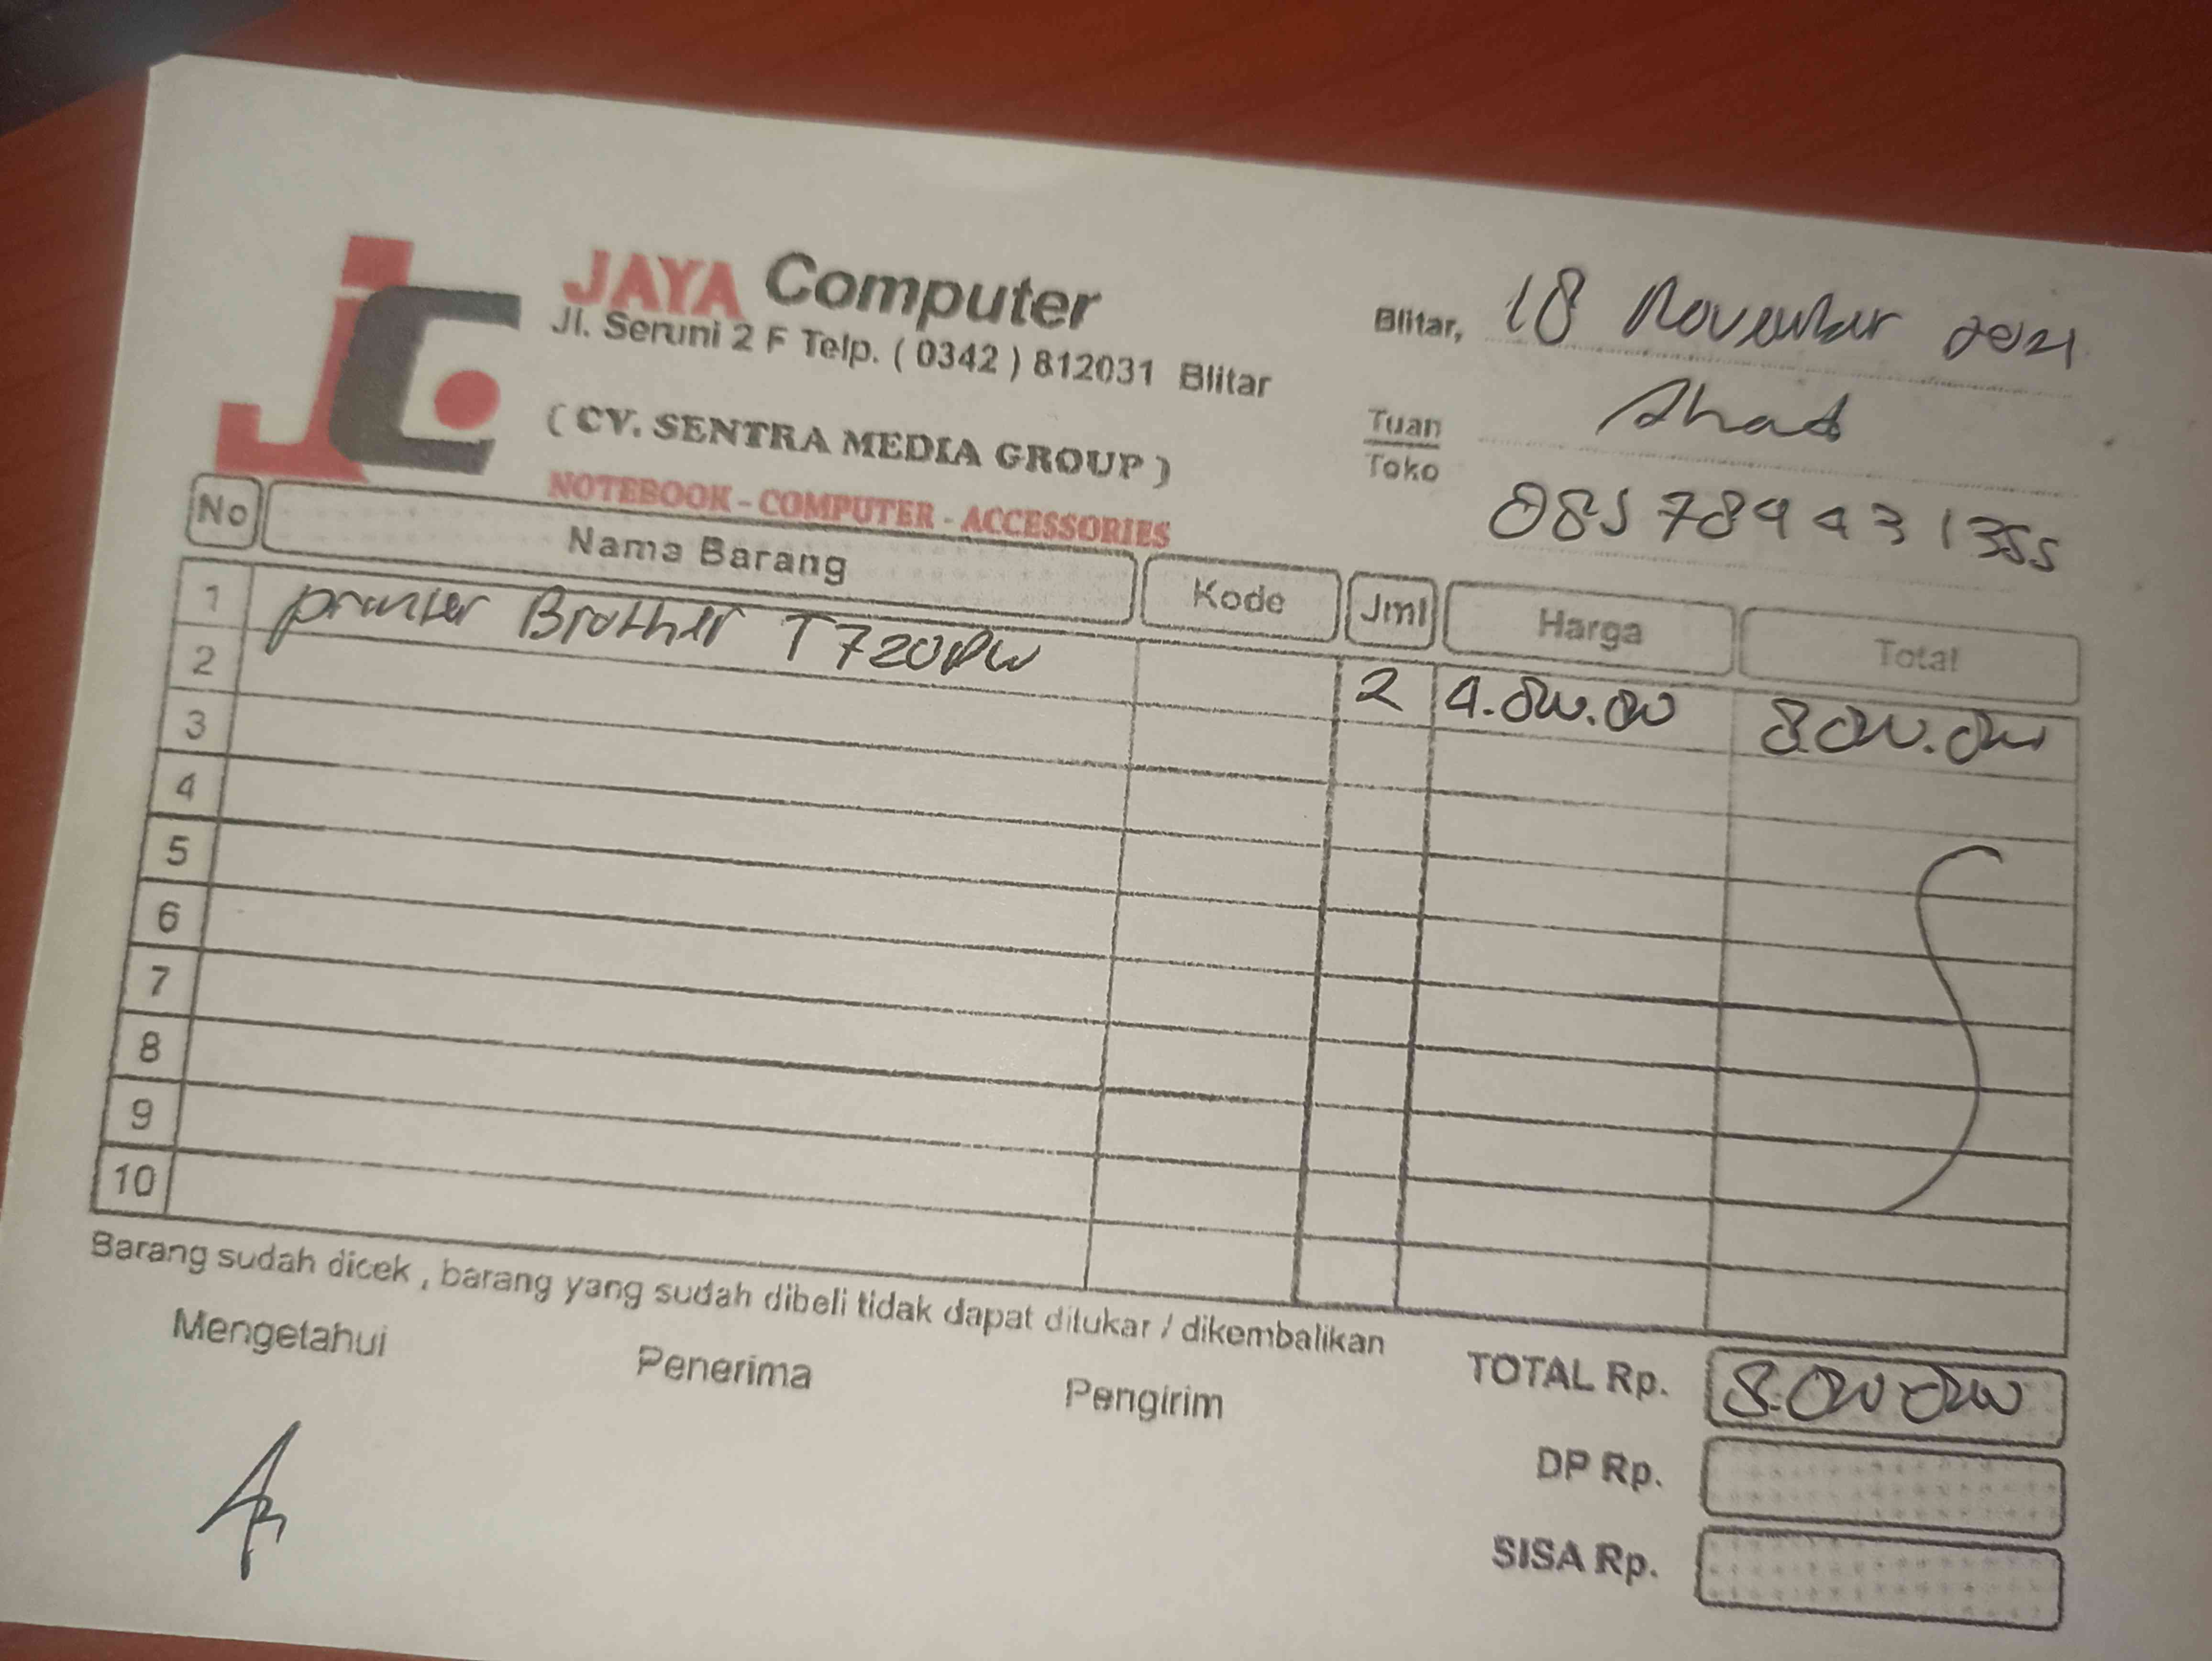 JAYA Computer
Jl. Seruni 2 F Telp. ( 0342 ) 812031 Blitar
( CV. SENTRA MEDIA GROUP )
NOTEBOOK - COMPUTER - ACCESSORIES
Blitar, 18 November 2021
Tuan
Toko
No Nama Barang Kode Jml Harga Total
1 printer Brother T720DW 2 4.000.000 8.000.000
2
3
4
5
6
7
8
9
10
Barang sudah dicek , barang yang sudah dibeli tidak dapat ditukar / dikembalikan
Mengetahui Penerima Pengirim
TOTAL Rp. 8.000.000
DP Rp.
SISA Rp.